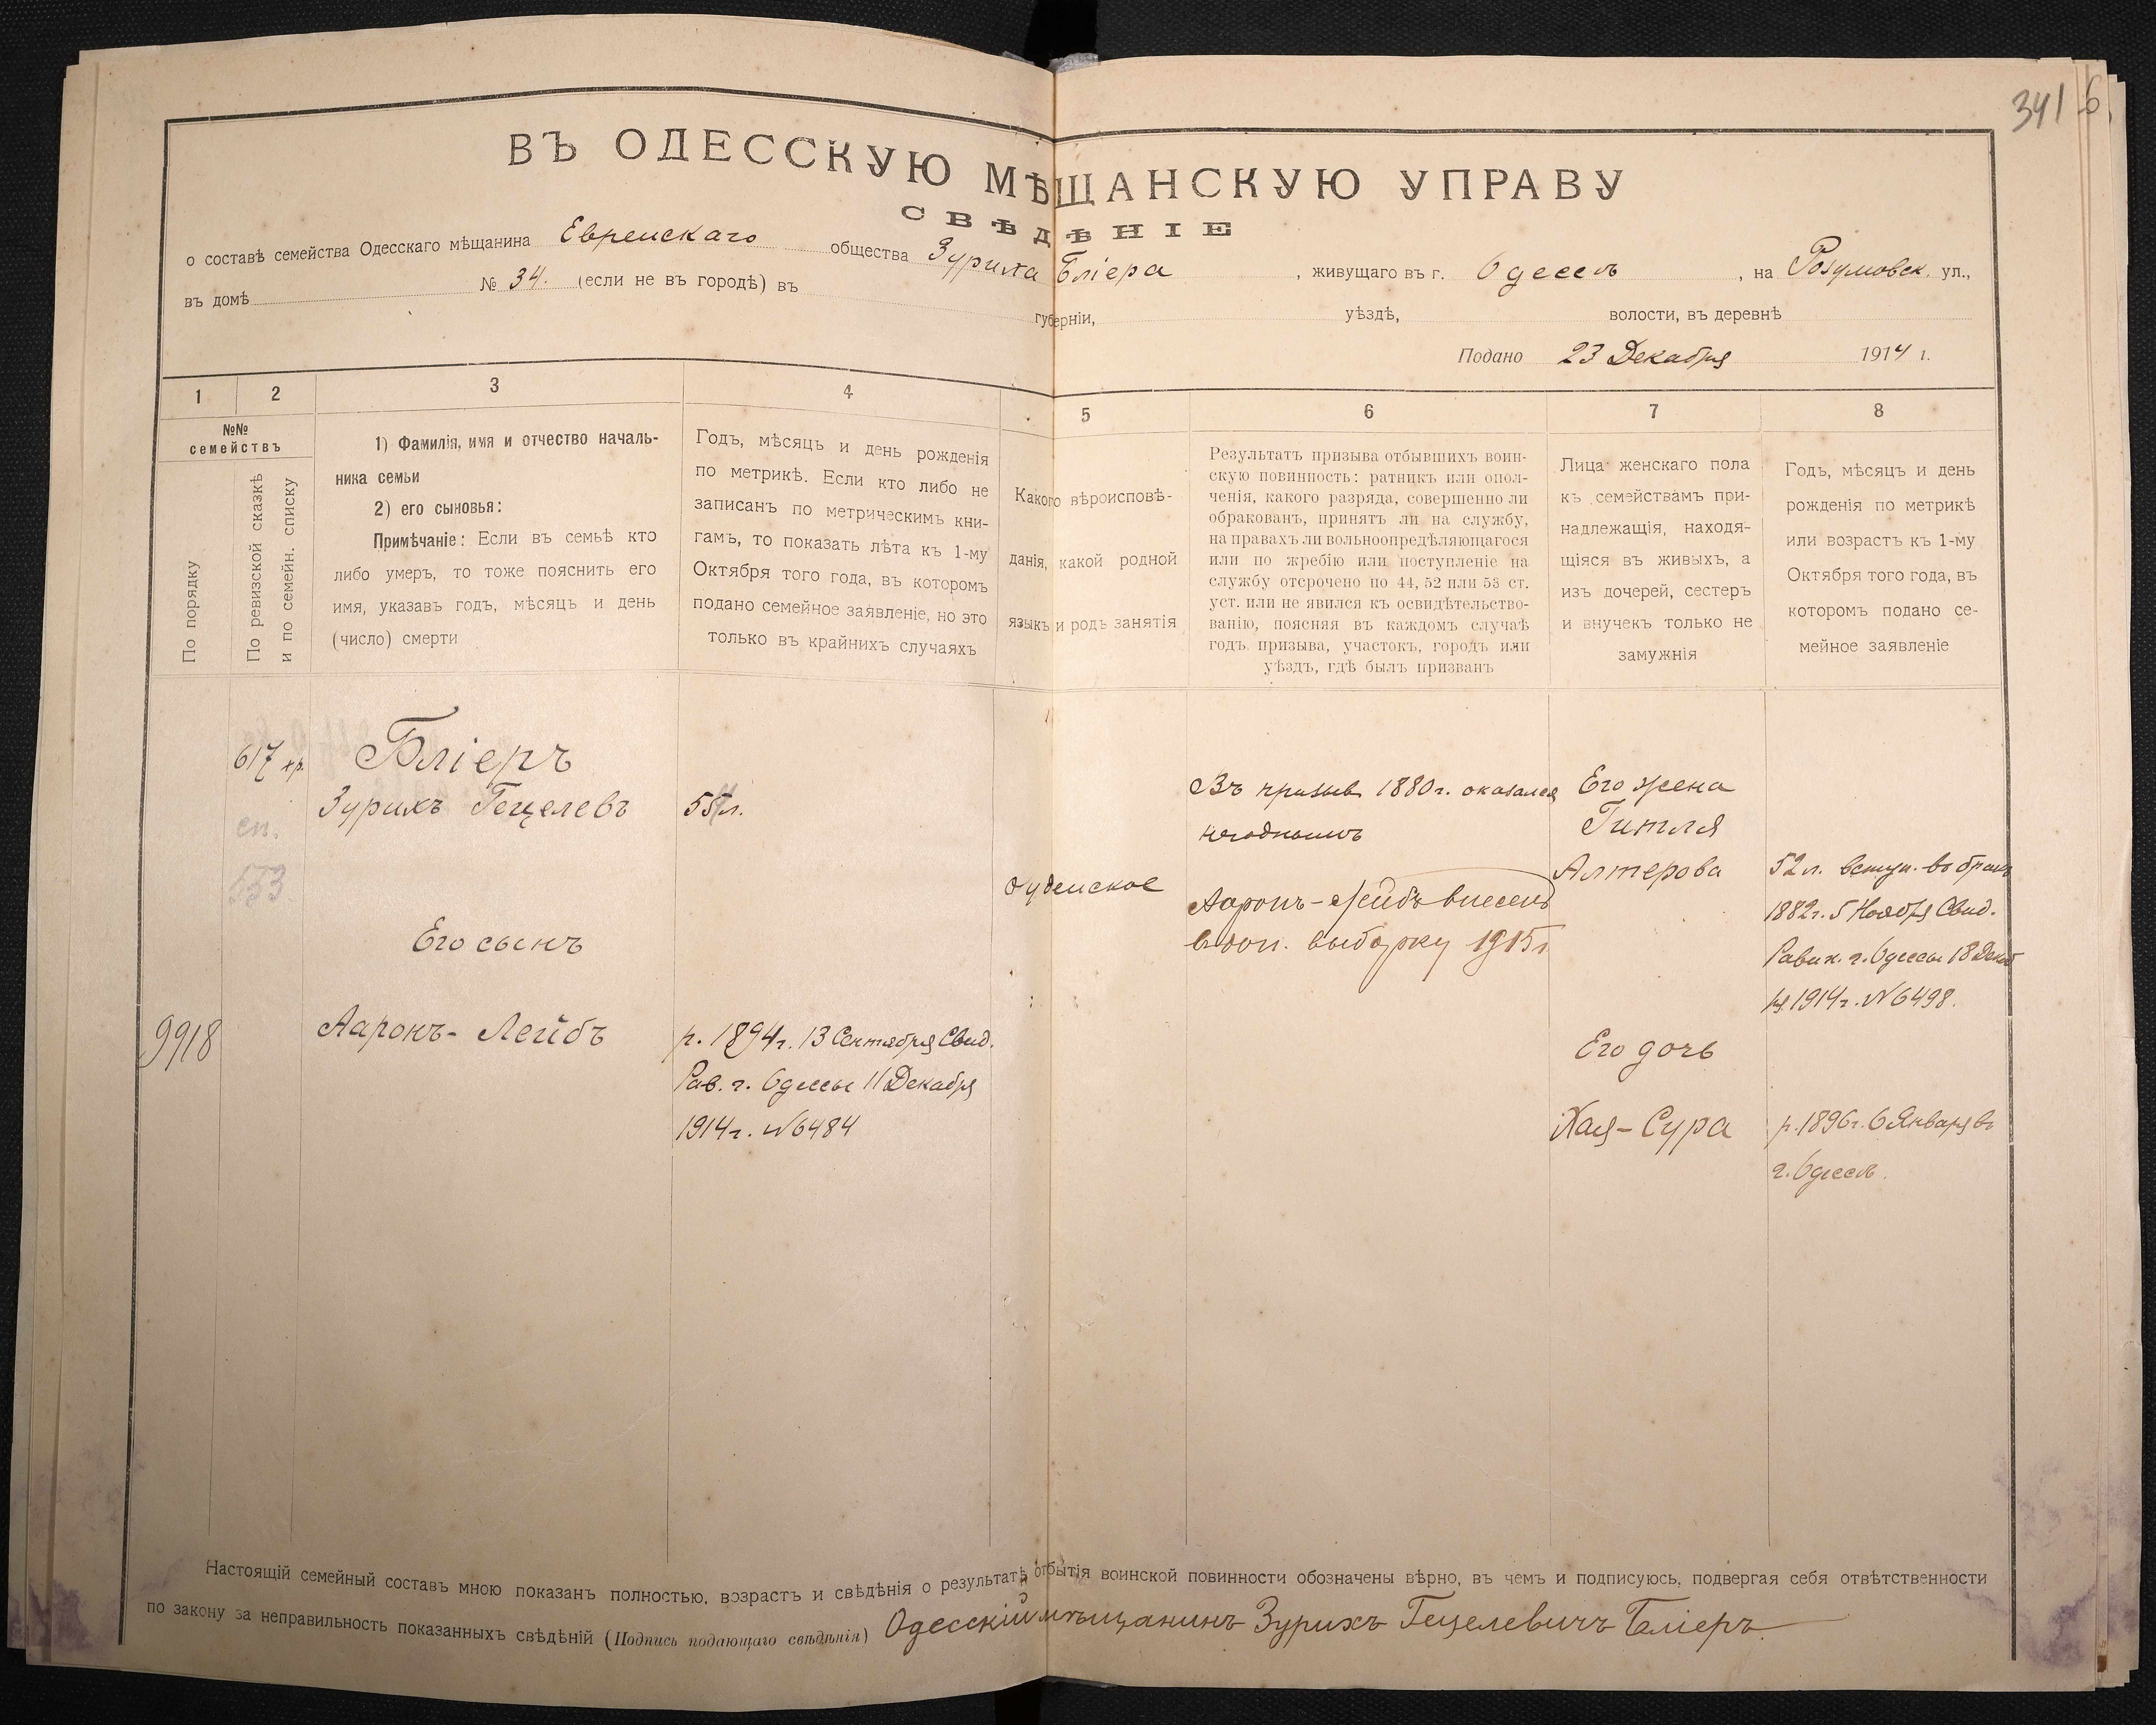 341
ВЪ ОДЕССКУЮ МѢЩАНСКУЮ УПРАВУ
СВѢДѢНІЕ
о составѣ семейства Одесскаго мѣщанина Еврейскаго общества Зуриха Бліера, живущаго въ г. Одессѣ, на Розумовск. ул.,
въ домѣ № 34. (если не въ городѣ) въ губерніи, уѣздѣ, волости, въ деревнѣ
Подано 23 Декабря 1914 г.
1 2 3 4 5 6 7 8
№№
семействъ
По порядку
По ревизской сказкѣ
и по семейн. списку
1) Фамилія, имя и отчество началь-
ника семьи
2) его сыновья:
Примѣчаніе: Если въ семьѣ кто
либо умеръ, то тоже пояснить его
имя, указавъ годъ, мѣсяцъ и день
(число) смерти
Годъ, мѣсяцъ и день рожденія
по метрикѣ. Если кто либо не
записанъ по метрическимъ кни-
гамъ, то показать лѣта къ 1-му
Октября того года, въ которомъ
подано семейное заявленіе, но это
только въ крайнихъ случаяхъ
Какого вѣроисповѣ-
данія, какой родной
языкъ и родъ занятія
Результатъ призыва отбывшихъ воин-
скую повинность: ратникъ или опол-
ченія, какого разряда, совершенно ли
обракованъ, принятъ ли на службу,
на правахъ ли вольноопредѣляющагося
или по жребію или поступленіе на
службу отсрочено по 44, 52 или 53 ст.
уст. или не явился къ освидѣтельство-
ванію, поясняя въ каждомъ случаѣ
годъ призыва, участокъ, городъ или
уѣздъ, гдѣ былъ призванъ
Лица женскаго пола
къ семействамъ при-
надлежащія, находя-
щіяся въ живыхъ, а
изъ дочерей, сестеръ
и внучекъ только не
замужнія
Годъ, мѣсяцъ и день
рожденія по метрикѣ
или возрастъ къ 1-му
Октября того года, въ
которомъ подано се-
мейное заявленіе
617
сп.
553
9918
Бліеръ
Зурихъ Гецелевъ
Его сынъ
Ааронъ-Лейбъ
55 л.
р. 1894 г. 13 Сентября Свид.
Рав. г. Одессы 11 Декабря
1914 г. № 6484
Іудейское
Въ призыв 1880 г. оказался
негоднымъ
Ааронъ-Лейбъ внесенъ
в доп. выборку 1915 г.
Его жена
Гитля
Алтерова
Его дочь
Хая-Сура
52 л. вступ. въ бракъ
1882 г. 5 Ноября Свид.
Равин. г. Одессы 18 Декаб
1914 г. № 6498.
р. 1896 г. 6 Января въ
г. Одессѣ.
Настоящій семейный составъ мною показанъ полностью, возрастъ и свѣдѣнія о результатѣ отбытія воинской повинности обозначены вѣрно, въ чемъ и подписуюсь, подвергая себя отвѣтственности
по закону за неправильность показанныхъ свѣдѣній (Подпись подающаго свѣдѣнія) Одесскій мѣщанинъ Зурихъ Гецелевичъ Бліеръ